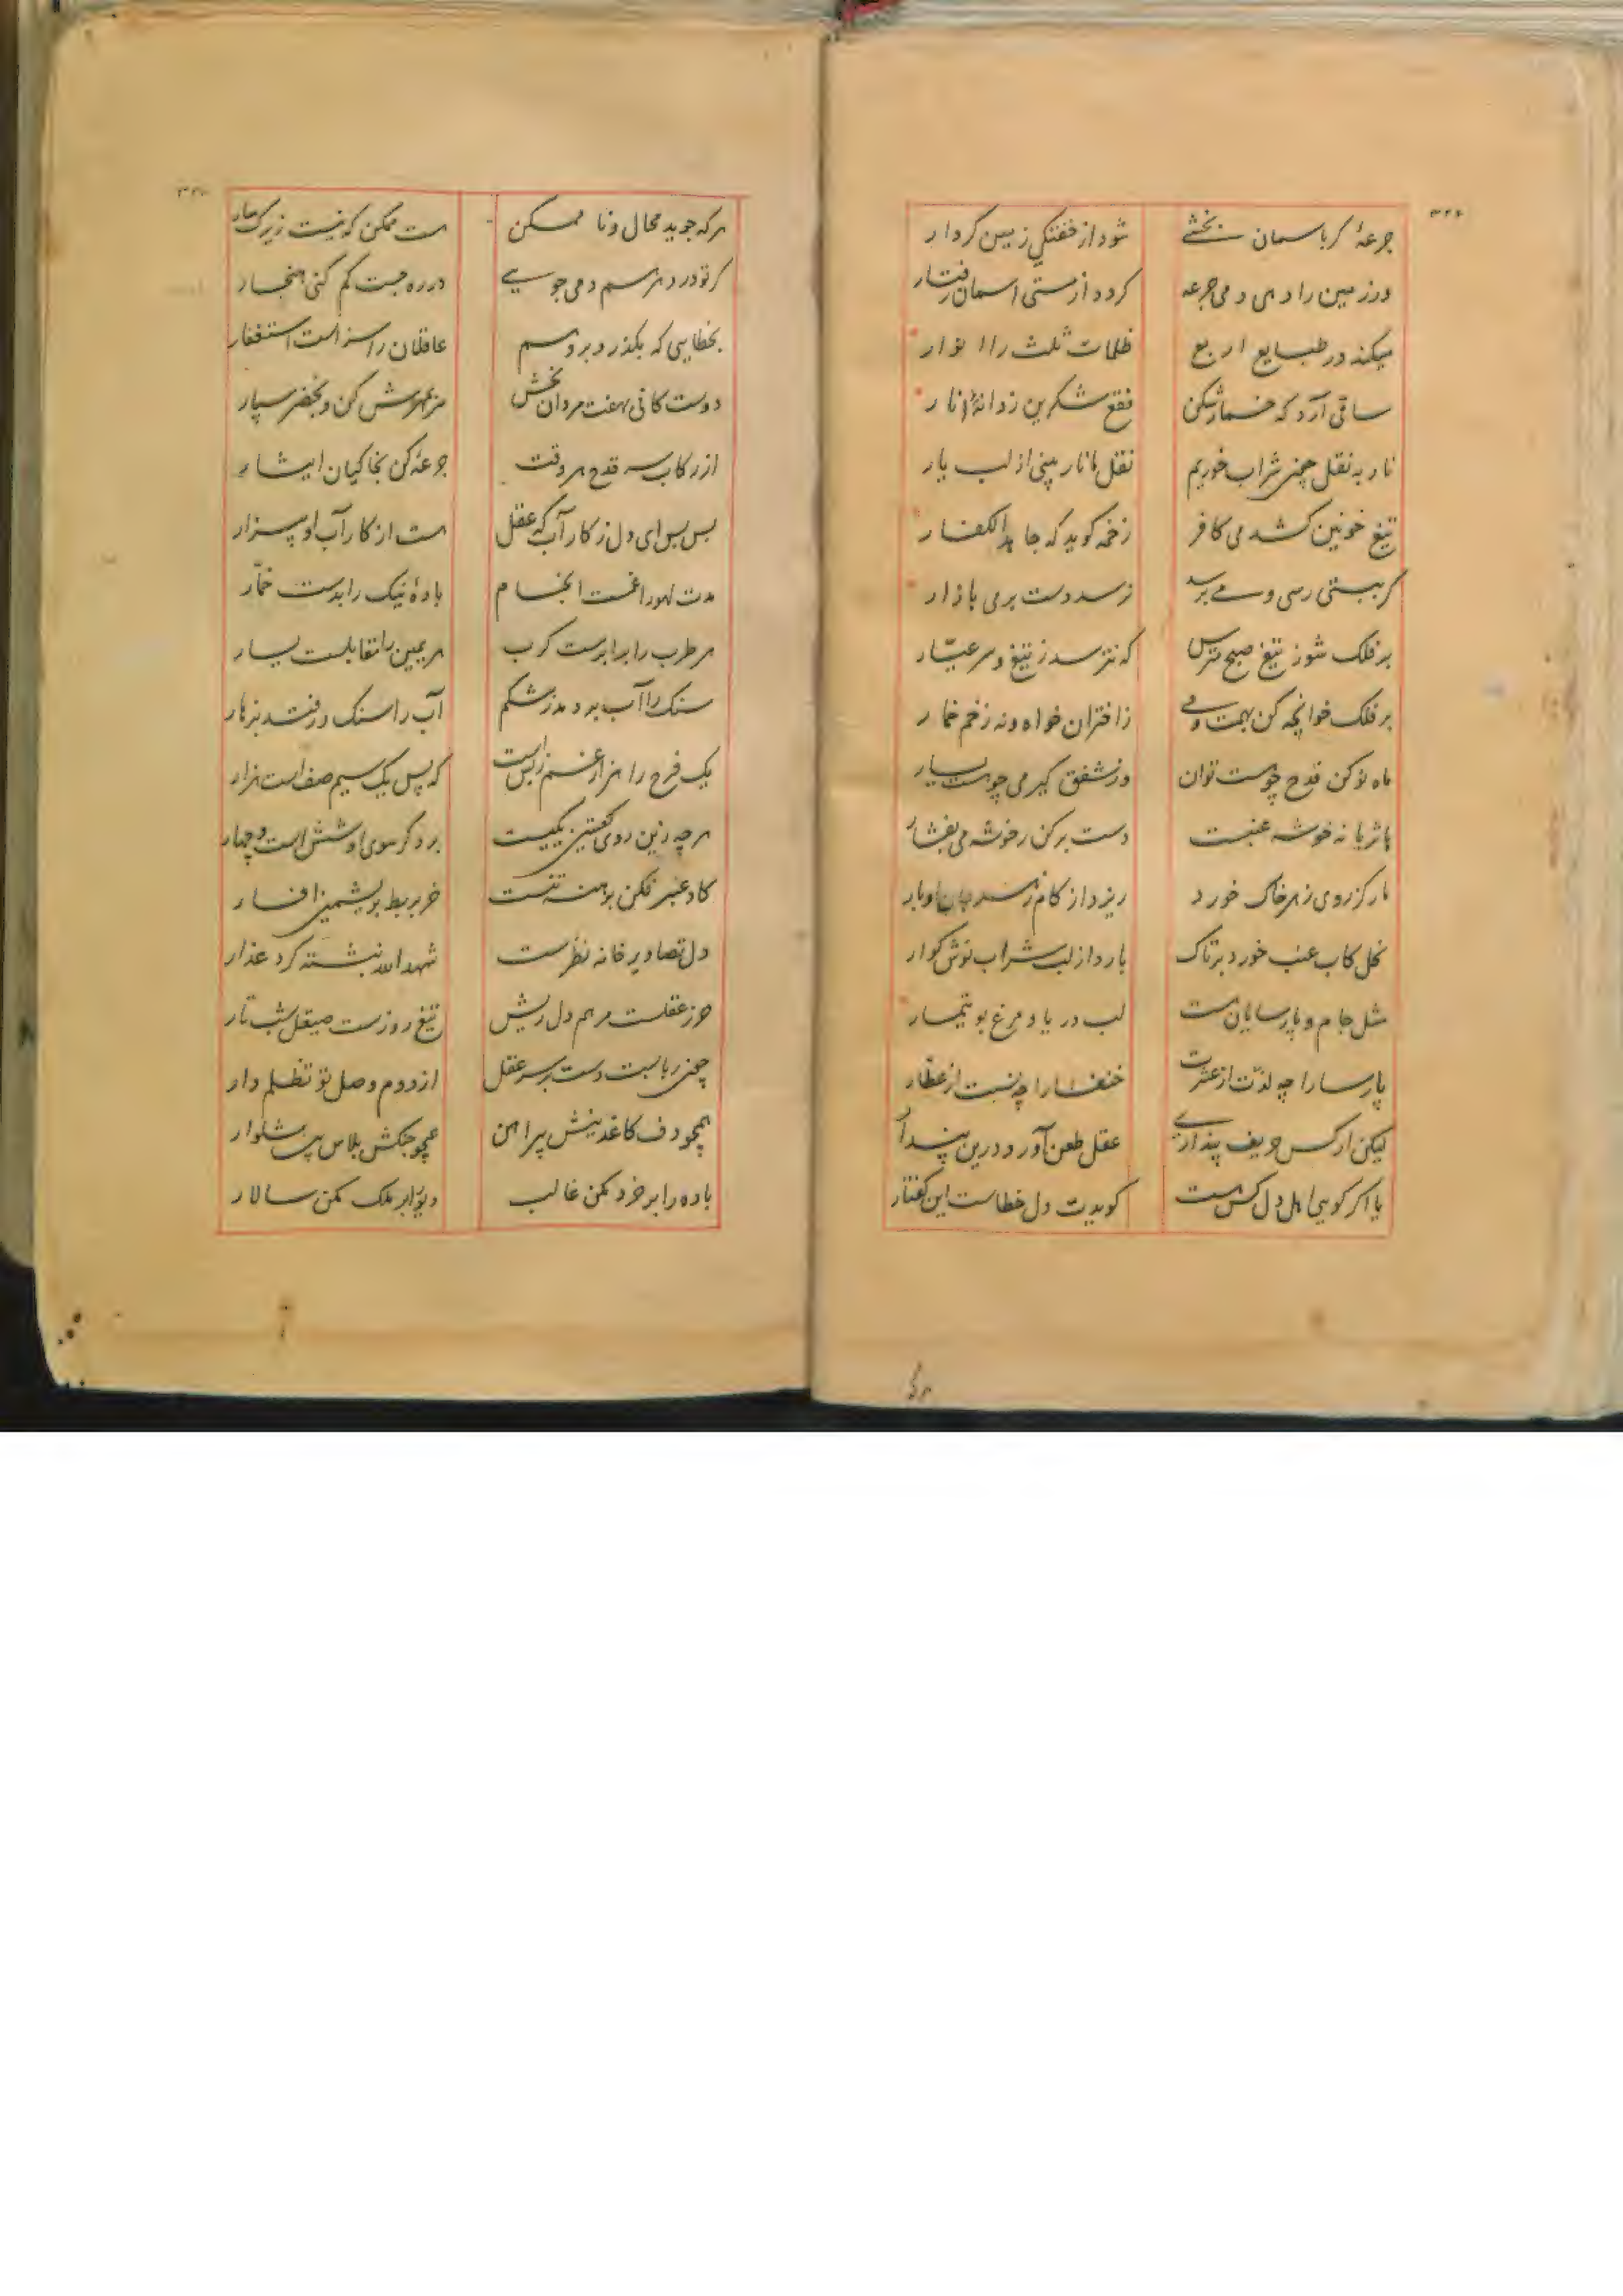 ۳۲۶
جرعهٔ کر باسمان بخشے
شود از خفتکی زمین کردار
ورزمین را دهی دمی جرعه
کردد از مستی اسمان رفتار
میکند در طبایع اربع
ظلمات ثلث را انوار
ساقی آرد که خمار شکن
فقع شکرین ز دانهٔ نار
نار به نقل چون شراب خوریم
نقل ما نار بینی از لب یار
تیغ خونین کشد می کافر
زخمه کوید که جاهد الکفار
کر بپستی رسی و می نرسد
نرسد دست بر می بازار
بر فلک شو ز تیغ صبح مترس
که نترسد ز تیغ و سر عیّار
بر فلک خوانچه کن بهمت و می
ز اختران خواه و نه زخم خمار
ماه نو کن قدح چو هست توان
وز شفق کیر می چو هست یسار
یا ثریا نه خوشه عنبست
دست برکن ز خوشه می بفشار
مار کز روی زهر خاک خورد
ریزد از کام زهر او بار
نحل کاب عنب خورد بر تاک
بارد از لب شراب نوش کوار
مثل جام و پارسایان هست
لب دریا و مرغ بوتیمار
پارسا را چه لذّت از عشرت
خنفسا را چه نسبت از عطّار
لیکن ار کس حریف پنداری
عقل طعن آورد درین پندار
یا اکر کویی اهل دل کس هست
کویدت دل خطاست این کفتار
هرکه
۳۲۷
هرکه جوید محال و نا ممکن
هست ممکن که نیست زیرک سار
کر تو در دهر سم دمی جویے
در ره جست کم کنی هنجار
بخطایی که بکذرد بر وهم
عاقلان را سزاست استغفار
دوستکانی بهفت مردان بخش
مر بمهرش کن و بخضر سپار
از رکاب سه قدح هر وقت
جرعه کن بخاکیان ایثار
بس بس ای دل ز کار آب که عقل
هست از کار آب او بیزار
مدت لهو را غمست انجام
بادهٔ نیک را بدست خمّار
هر طرب را برابرست کرب
هر یمین را مقابلست یسار
سنک را آب برد هد ز شکم
آب را سنک ورفتد بزهار
یک فرح را هزار غم ز پس است
که پس یک سیم صفر است هزار
هر چه زین روی کعبتین یکیست
بر دکر سوی او شش است و چهار
کاو عنبر فکن برهنه تنست
خر بربط بریشمین افسار
دل تصاویر خانه نظرست
شهد الله نبشته کرد عذار
حرز عقلست مرهم دل ریش
تیغ روزست صیقل شب تار
چون ربابست دست بر سر عقل
از دم وصل تو تظلم دار
همچو دف کاغدینش پیراهن
همچو چنکش پلاس بین شلوار
باده را بر خرد مکن غالب
دیو را بر ملک مکن سالار